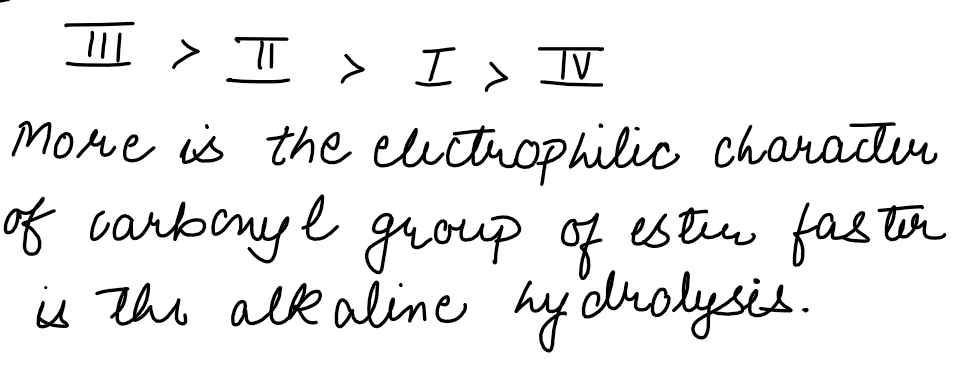 III > II > I > IV
More is the electrophilic character
of carbonyl group of ester faster
is the alkaline hydrolysis.